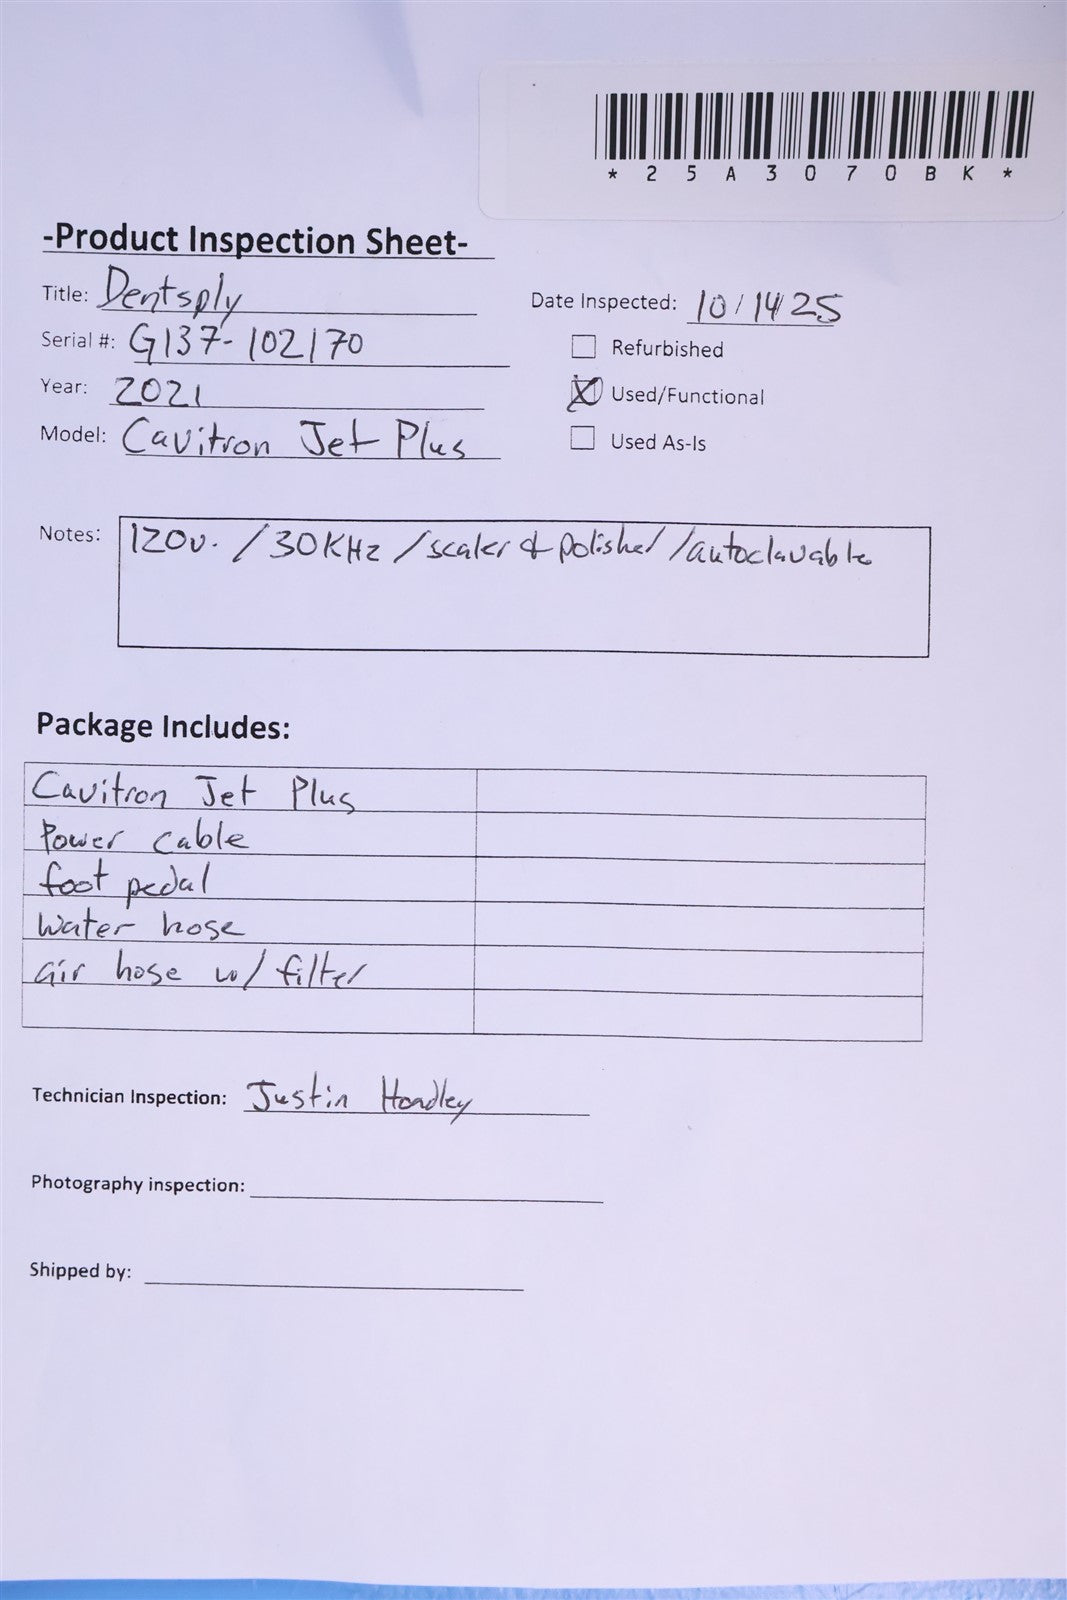 *25A3070BK*
-Product Inspection Sheet-
Title: Dentsply
Date Inspected: 10/14/25
Serial #: G137-102170
Refurbished
Year: 2021
Used/Functional
Model: Cavitron Jet Plus
Used As-Is
Notes: 120v. /30KHz /scaler & polisher /autoclavable
Package Includes:
Cavitron Jet Plus
Power cable
foot pedal
Water hose
air hose w/ filter
Technician Inspection: Justin Hoadley
Photography inspection:
Shipped by: